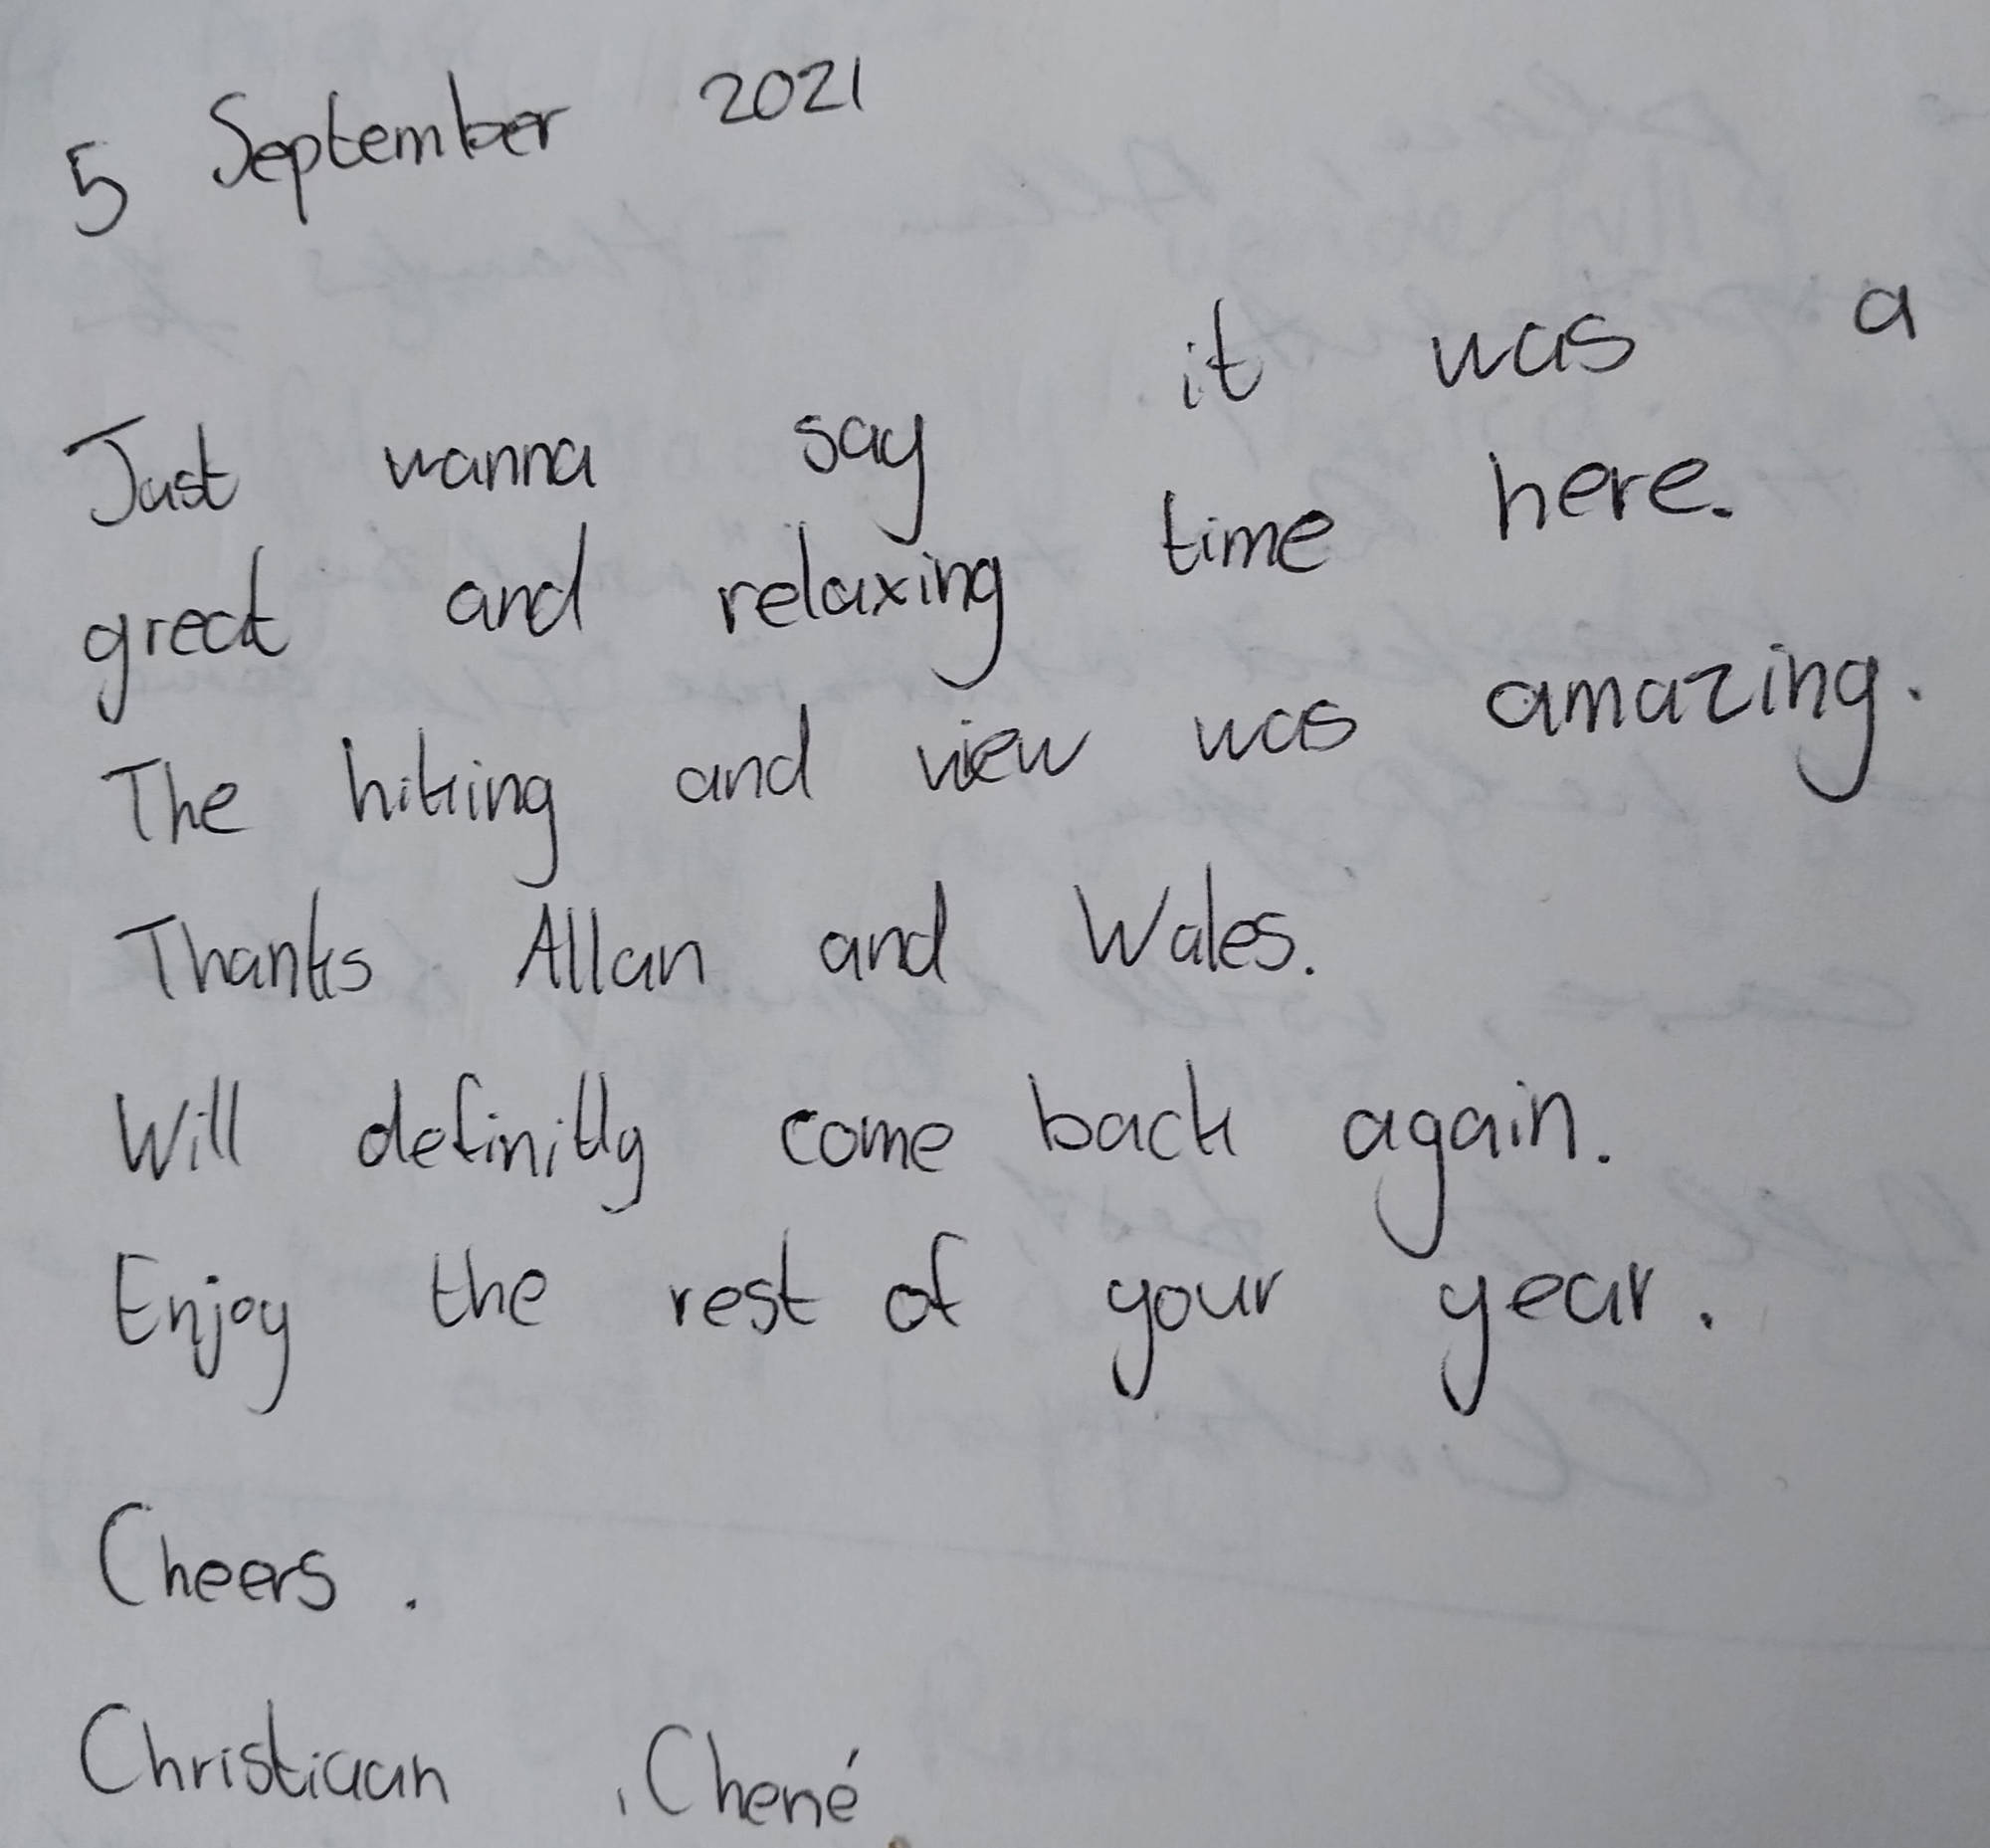 5 September 2021
Just wanna say it was a
great and relaxing time here.
The hiking and view was amazing.
Thanks Allan and Wales.
Will definitly come back again.
Enjoy the rest of your year.
Cheers.
Christiaan , Chené